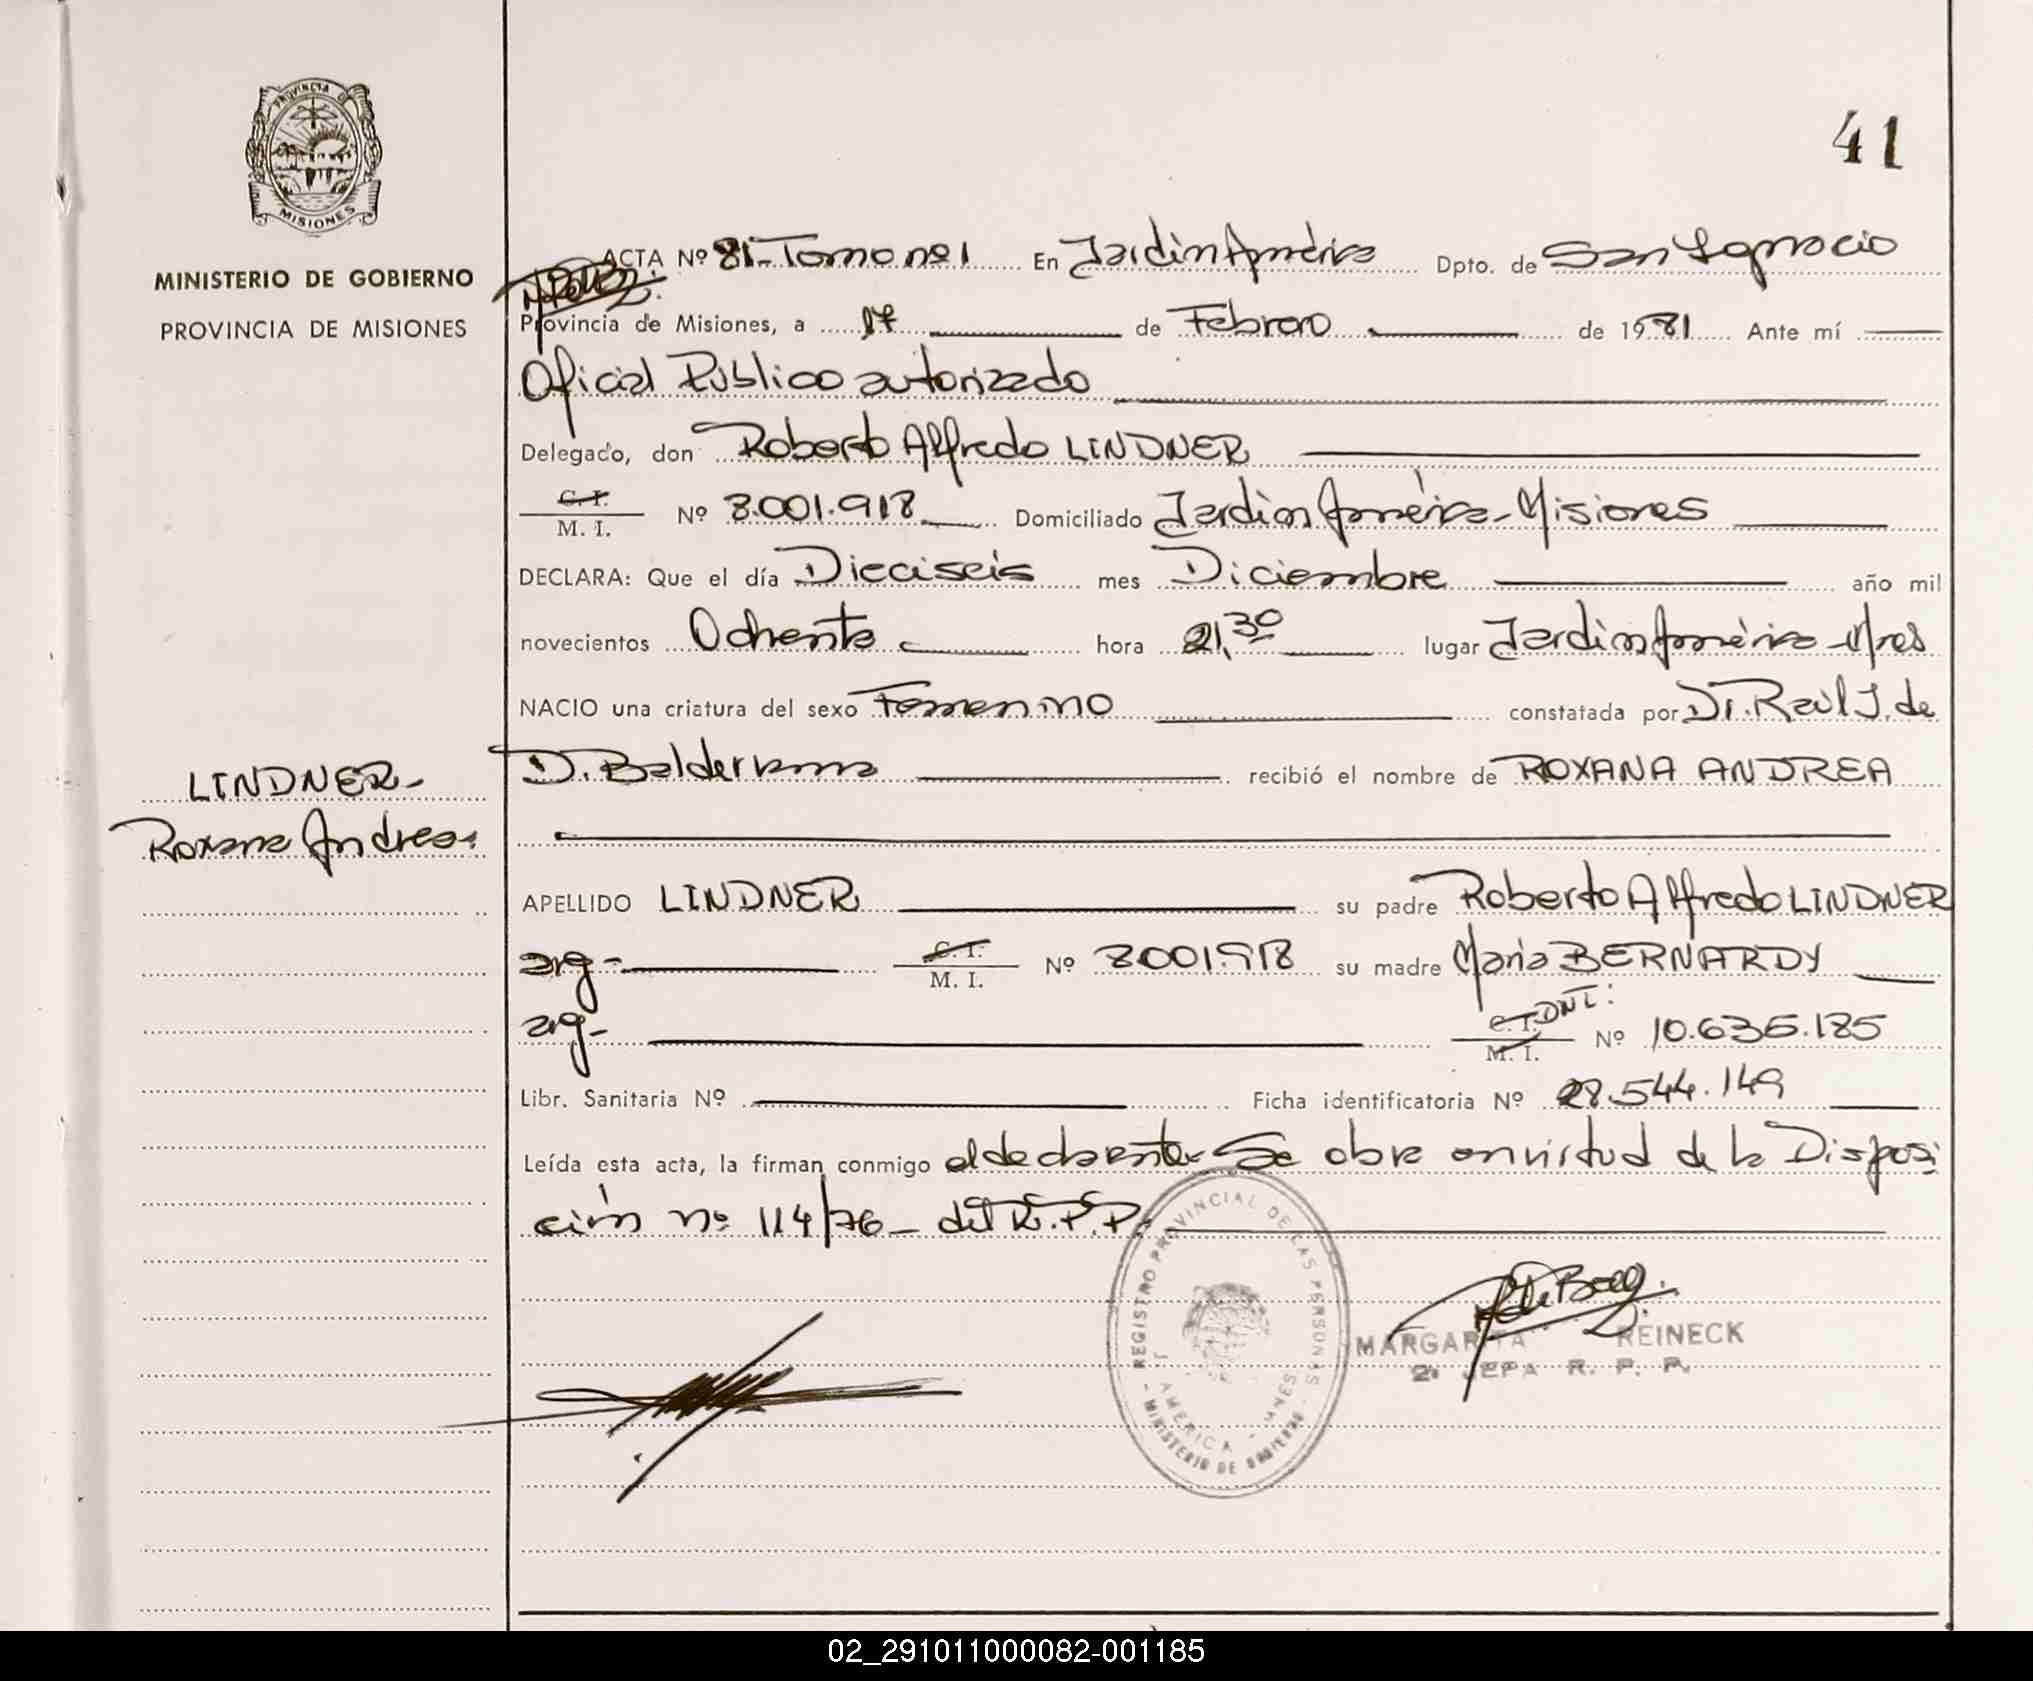 PROVINCIA DE
MISIONES
MINISTERIO DE GOBIERNO
PROVINCIA DE MISIONES
LINDNER-
Roxana Andrea.
41
ACTA Nº 81-Tomo nº 1 En Jardín América Dpto. de San Ignacio
Provincia de Misiones, a 17 de Febrero de 1981 Ante mí
Oficial Público autorizado
Delegado, don Roberto Alfredo LINDNER
C. I.
M. I. Nº 8.001.918 Domiciliado Jardín América-Misiones
DECLARA: Que el día Dieciseis mes Diciembre año mil
novecientos Ochenta hora 21,30 lugar Jardín América-Mnes
NACIO una criatura del sexo Femenino constatada por Dr. Raúl J. de
D. Balderrama recibió el nombre de ROXANA ANDREA
APELLIDO LINDNER su padre Roberto Alfredo LINDNER
arg- C. I.
M. I. Nº 8001918 su madre Maria BERNARDY
arg- C. I. DNI:
M. I. Nº 10.635.185
Libr. Sanitaria Nº Ficha identificatoria Nº 28.544.149
Leída esta acta, la firman conmigo el declarante- Se labra en virtud de la Disposi
ción nº 114/76- del R.P.P.
REGISTRO PROVINCIAL DE LAS PERSONAS
J. AMERICA - MNES
MINISTERIO DE GOBIERNO
MARGARITA REINECK
2ª JEFA R. P. P.
02_291011000082-001185